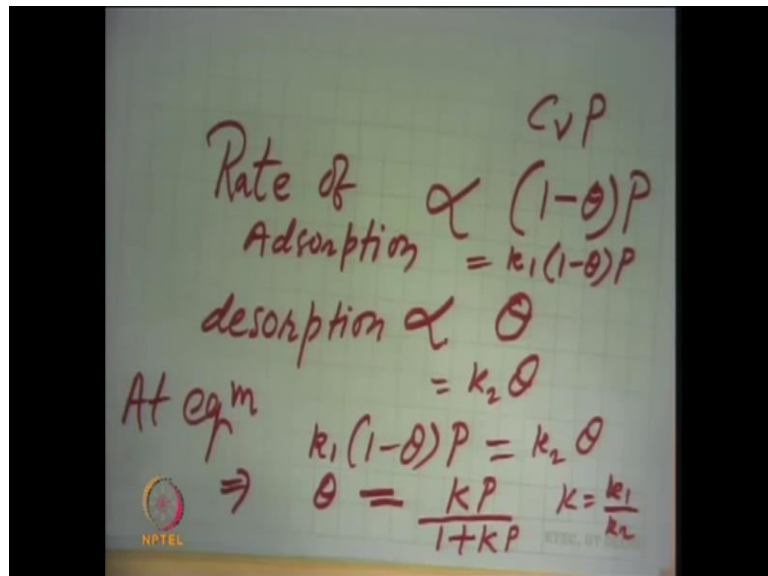 CvP
Rate of ∝ (1-θ)P
Adsorption = k₁(1-θ)P
desorption ∝ θ
= k₂θ
At eqᵐ
k₁(1-θ)P = k₂θ
⇒ θ = KP / 1+KP K = k₁/k₂
NPTEL